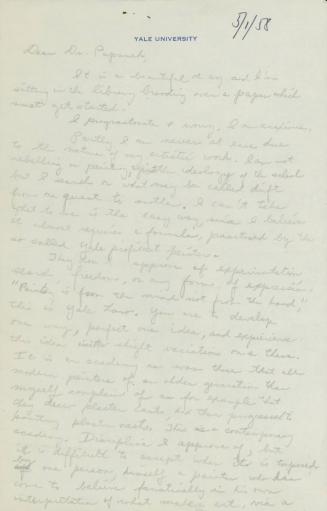 5/1/58
YALE UNIVERSITY
Dear Dr. Papanek,
It is a beautiful day and I'm
sitting in the library brooding over a paper which
must get started.
I procrastinate & worry. I am anxious.
Partly I am never at ease due
to the nature of my artistic work. I am not
rebelling in painting, the ideology of the school
but I search or what may be called drift
from one quest to another. I can't take
what to me is the easy way, since I believe
it almost requires a formula, practised by the
so called Yale proficient painter.
They don't approve of experimentation
freedom, or any forms of expression.
"Painting is from the mind not from the hand,"
this is Yale Law. You are to develop
one way, perfect one idea, and experience
this idea with slight variations on a theme.
It is an academy as was those that all
modern painters of an older generation than
myself complain of as for example that
they drew plaster casts, and then progressed to
painting plaster casts. This is a contemporary
academy. Discipline I approve of, but
it is difficult to accept when it is imposed
by one person, himself a painter who has
come to believe fanatically in his own
interpretation of what makes art, via a